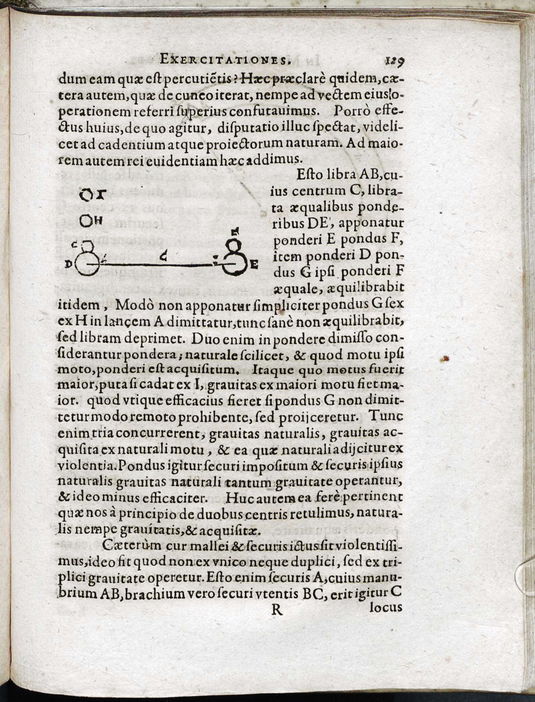 EXERCITATIONES. 129
dum eam quæ est percutiẽtis? Hæc præclarè quidem, cæ-
tera autem, quæ de cuneo iterat, nempe ad vectem eius o-
perationem referri superius confutauimus. Porrò effe-
ctus huius, de quo agitur, disputatio illuc spectat, videli-
cet ad cadentium atque proiectorum naturam. Ad maio-
rem autem rei euidentiam hæc addimus.
Esto libra AB, cu-
ius centrum C, libra-
ta æqualibus ponde-
ribus DE, apponatur
ponderi E pondus F,
item ponderi D pon-
dus G ipsi ponderi F
æquale, æquilibrabit
I
H
D
E
itidem, Modò non apponatur simpliciter pondus G sex
ex H in lancem A dimittatur, tunc sanè non æquilibrabit,
sed libram deprimet. Duo enim in pondere dimisso con-
siderantur pondera, naturale scilicet, & quod motu ipsi
moto, ponderi est acquisitum. Itaque quo motus fuerit
maior, puta si cadat ex I, grauitas ex maiori motu fiet ma-
ior. quod vtique efficacius fieret si pondus G non dimit-
tetur modo remoto prohibente, sed proijceretur. Tunc
enim tria concurrerent, grauitas naturalis, grauitas ac-
quisita ex naturali motu, & ea quæ naturali adijcitur ex
violentia. Pondus igitur securi impositum & securis ipsius
naturalis grauitas naturali tantum grauitate operantur,
& ideo minus efficaciter. Huc autem ea ferè pertinent
quæ nos à principio de duobus centris retulimus, natura-
lis nempe grauitatis, & acquisitæ.
Cæterùm cur mallei & securis ictus sit violentissi-
mus, ideo fit quod non ex vnico neque duplici, sed ex tri-
plici grauitate operetur. Esto enim securis A, cuius manu-
brium AB, brachium vero securi vtentis BC, erit igitur C
R locus